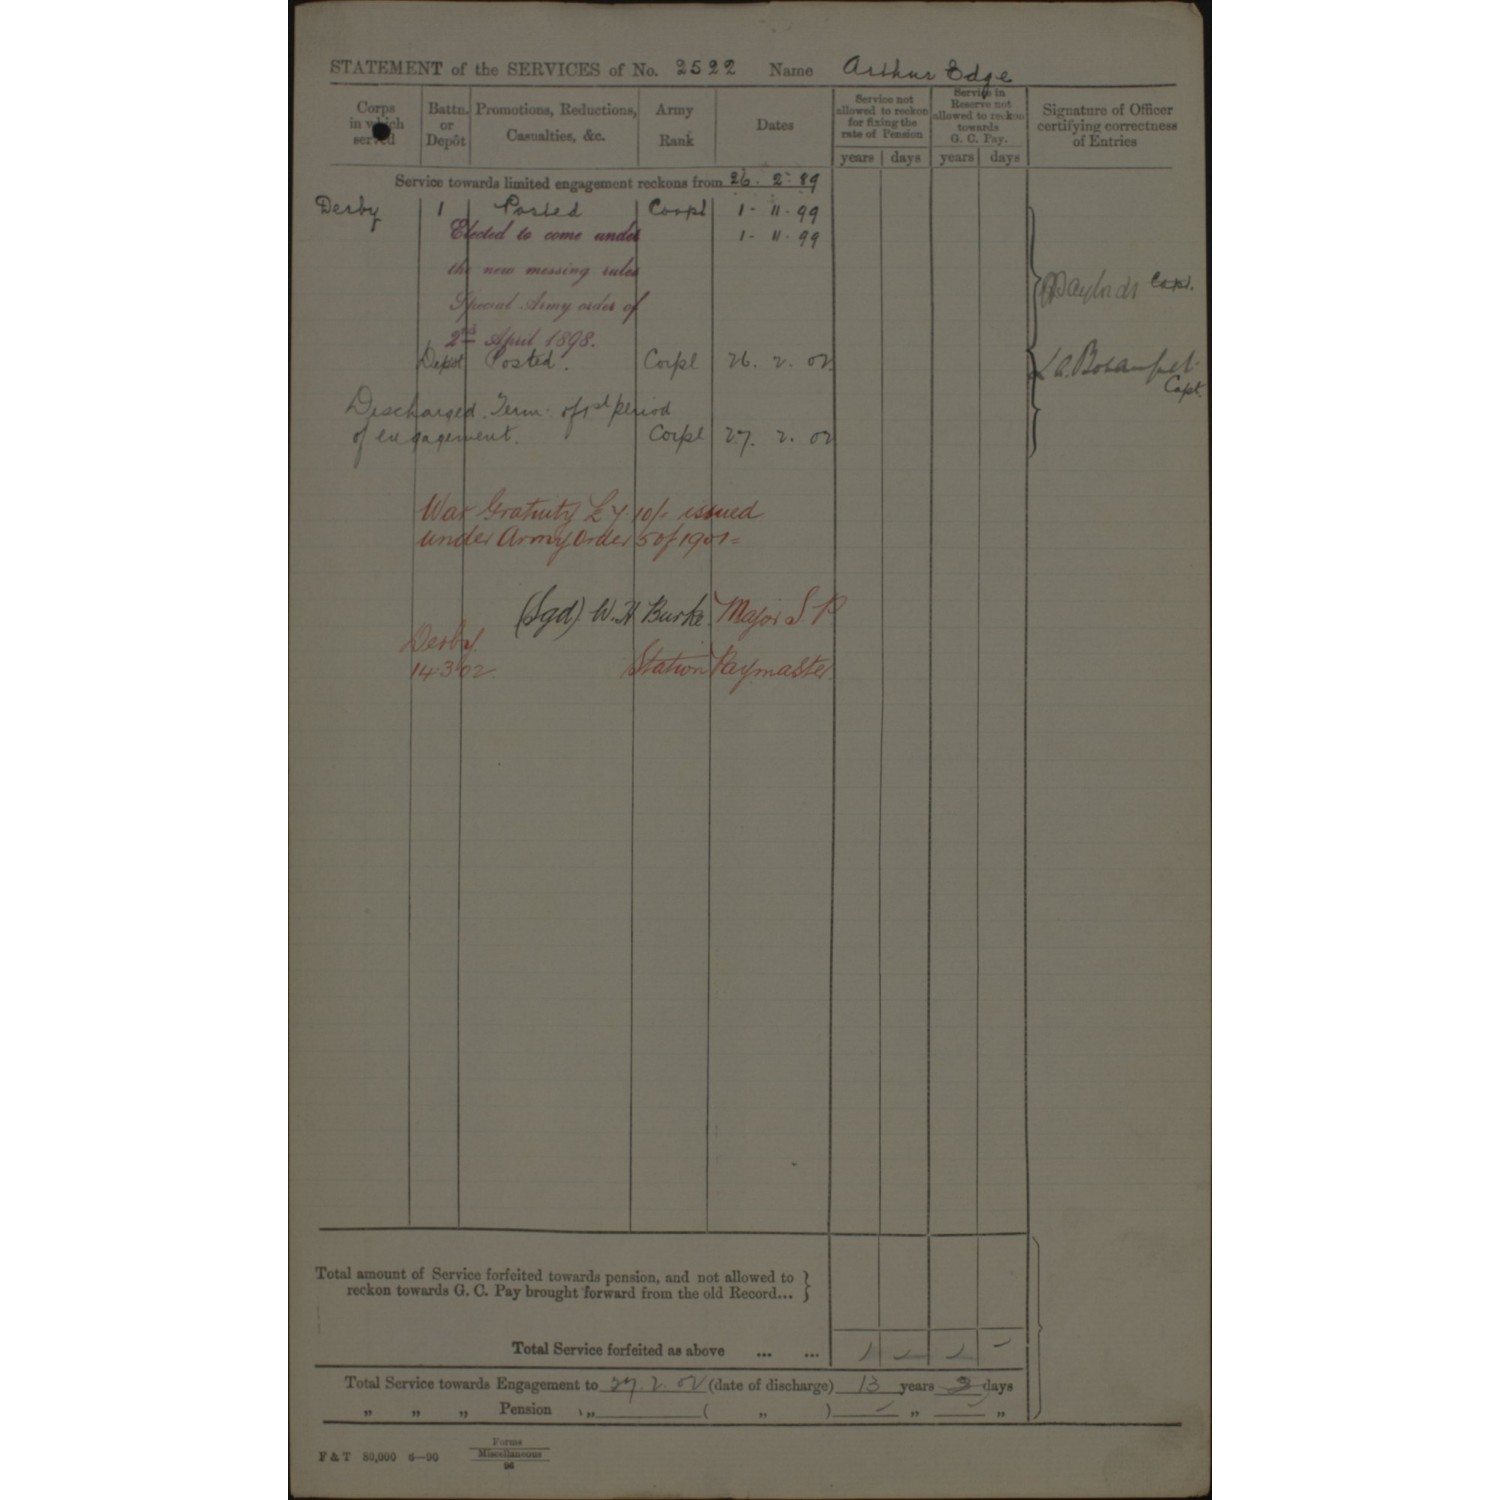 STATEMENT of the SERVICES of No. 2522 Name Arthur Edge
Corps in which served
Battn. or Depôt
Promotions, Reductions, Casualties, &c.
Army Rank
Dates
Service not allowed to reckon for fixing the rate of Pension
Service in Reserve not allowed to reckon towards G. C. Pay.
Signature of Officer certifying correctness of Entries
years days years days
Service towards limited engagement reckons from 26. 2. 89
Derby 1 Posted Corpl 1- 11- 99
Elected to come under 1- 11- 99
the new messing rules
Special Army order of Capt.
2nd April 1898.
Depôt Posted. Corpl 26. 2. 02
Capt
Discharged. Term. of 1st period
of engagement. Corpl 27. 2. 02
War Gratuity £7 10/- issued
under Army Order 5 of 1901=
(Sgd) W. H Burke Major S. P
Derby
14 3 02. Station Paymaster.
Total amount of Service forfeited towards pension, and not allowed to
reckon towards G. C. Pay brought forward from the old Record...
Total Service forfeited as above ... ...
Total Service towards Engagement to 27. 2. 02 (date of discharge) 13 years 2 days
„ „ „ Pension „ ( „ ) „ „
F & T 80,000 6—90 Forms
Miscellaneous
96